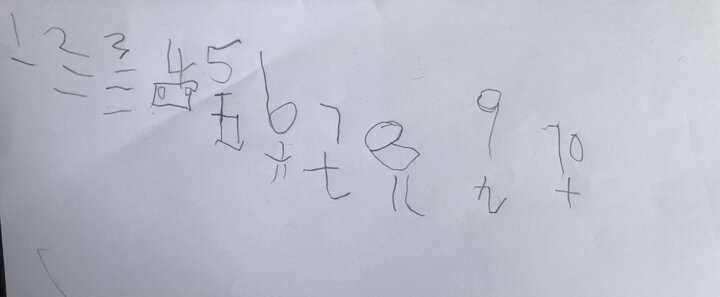 1 2 3 4 5 6 7 8 9 10
一 二 三 四 五 六 七 八 九 十